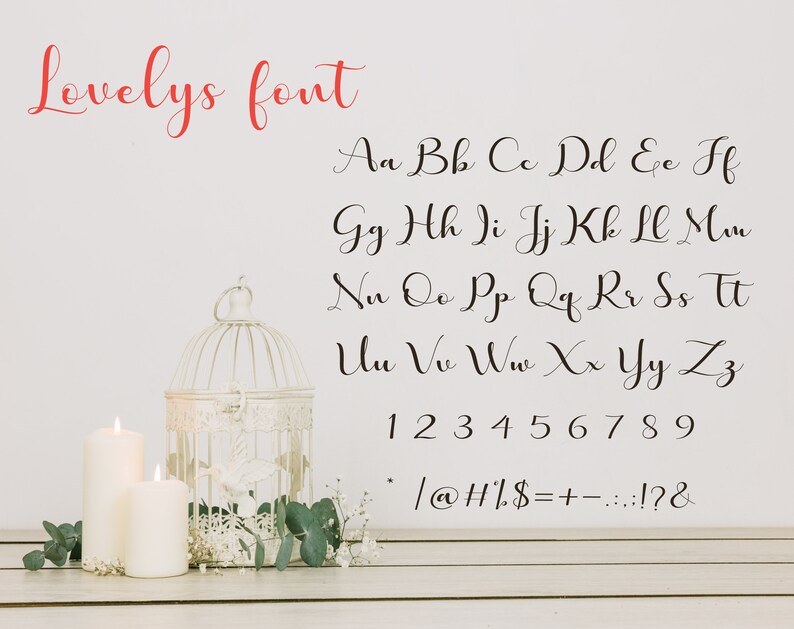 Lovelys font
Aa Bb Cc Dd Ee Ff
Gg Hh Ii Jj Kk Ll Mm
Nn Oo Pp Qq Rr Ss Tt
Uu Vv Ww Xx Yy Zz
1 2 3 4 5 6 7 8 9
* /@#%$=+-.:,;!?&